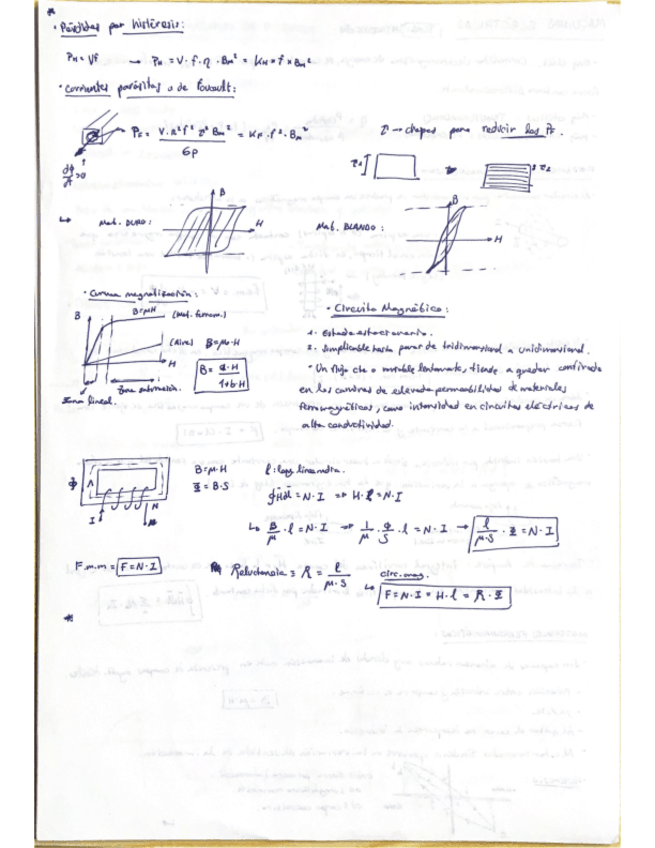 · Pérdidas por histéresis:
P_H = Vf → P_H = V · f · η · Bm² = K_H × f × Bm²
· Corrientes parásitas o de Foucault:
P_F = V · π² f² τ² Bm² / 6ρ = K_F · f² · Bm²
τ → chapas para reducir las P_F.
dφ/dt > 0
τ1
τ2
↳ Mat. DURO:
B
H
Mat. BLANDO:
B
H
· Curva magnetización:
B
B=μH
(Mat. ferrom.)
(Aire) B=μ₀·H
H
B = a·H / 1+b·H
Zona lineal.
Zona saturación.
· Circuito Magnético:
1. Estado estacionario.
2. Simplicable hasta pasar de tridimensional a unidimensional.
· Un flujo cte o variable lentamente, tiende a quedar confinado
en los caminos de elevada permeabilidad de materiales
ferromagnéticos, como intensidad en circuitos eléctricos de
alta conductividad.
Φ
I
N
B=μ·H
Φ=B·S
l: long. linea media.
∮H dl = N·I ⇒ H·l = N·I
↳ B/μ · l = N·I ⇒ 1/μ · Φ/S · l = N·I → l/μ·S · Φ = N·I
F.m.m = F=N·I
Reluctancia ≡ R = l / μ·S
circ. mag.
↳ F = N·I = H·l = R·Φ